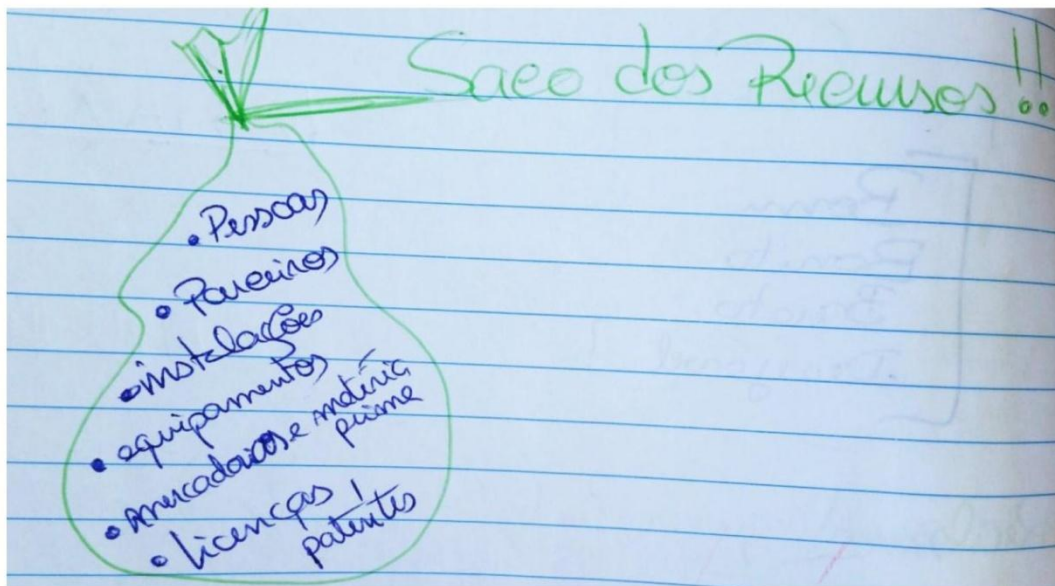 Saco dos Recursos!!
• Pessoas
• Parceiros
• instalações
• equipamentos
• mercadorias e matéria
prima
• Licenças /
patentes